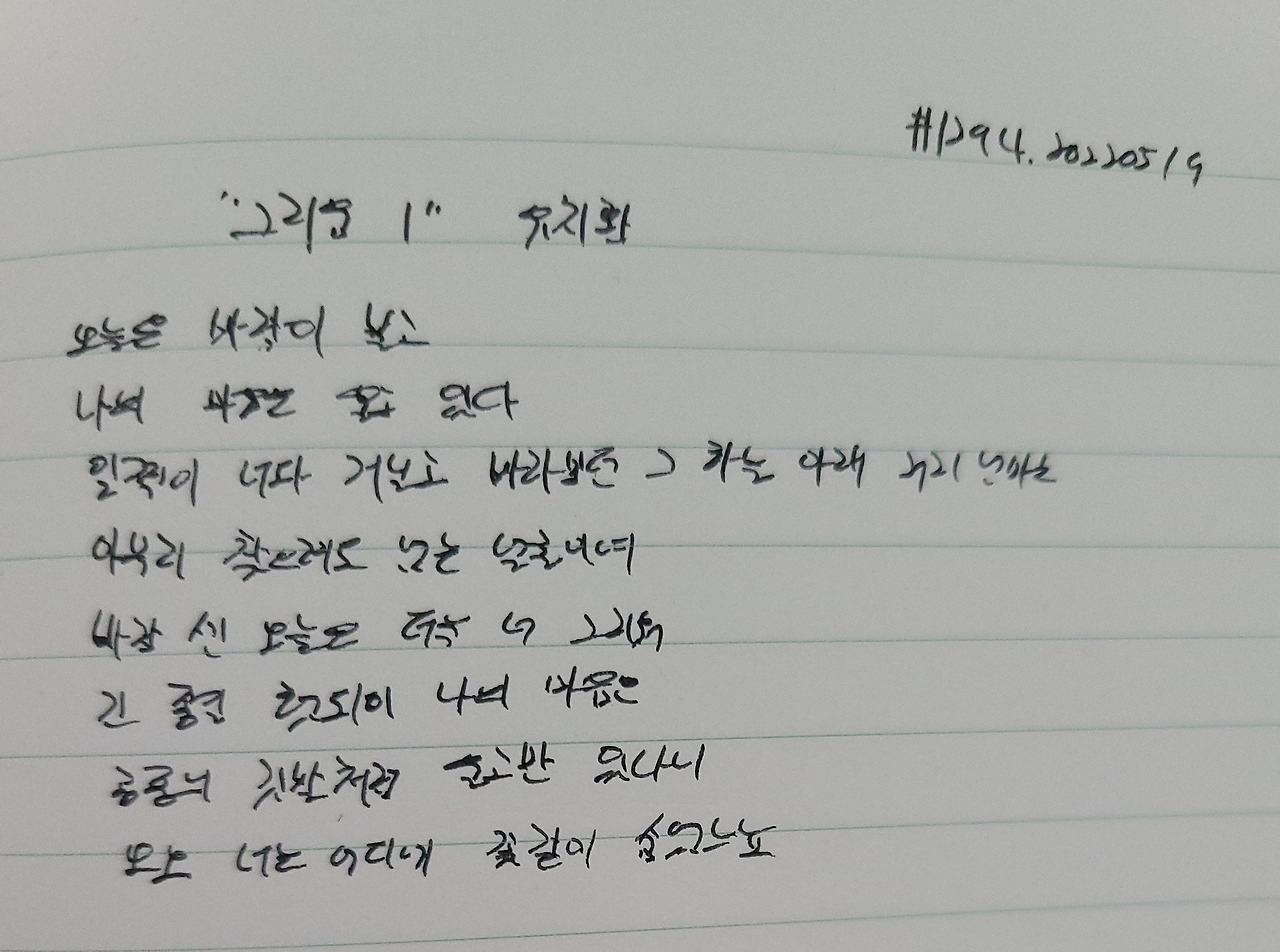 #1294. 20220519
"그리움 1" 유치환
오늘은 바람이 불고
나의 마음은 울고 있다
일찍이 너와 거닐고 바라보던 그 하늘 아래 거리언마는
아무리 찾으려도 없는 얼굴이여
바람 센 오늘은 더욱 너 그리워
긴 종일 헛되이 나의 마음은
공중의 깃발처럼 울고만 있나니
오오 너는 어디메 꽃같이 숨었느뇨